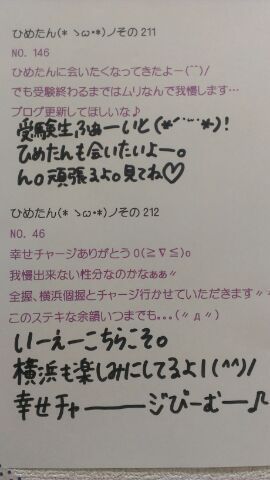 ひめたん(* ゝω・*)ノその211
NO. 146
ひめたんに会いたくなってきたよー(⌒⌒)/
でも受験終わるまではムリなんで我慢します…
ブログ更新してほしいな♪
受験生ふぁーいと(*´︶`*)!
ひめたんも会いたいよー。
ん。頑張るよ。見てね♡
ひめたん(* ゝω・*)ノその212
NO. 46
幸せチャージありがとう O(≧∇≦)o
我慢出来ない性分なのかなぁぁ〃
全握、横浜個握とチャージ行かせていただきます〃
このステキな余韻いつまでも｡｡｡(〃д〃)
いーえーこちらこそ。
横浜も楽しみにしてるよ!(^^)/
幸せチャーージびーむー♪